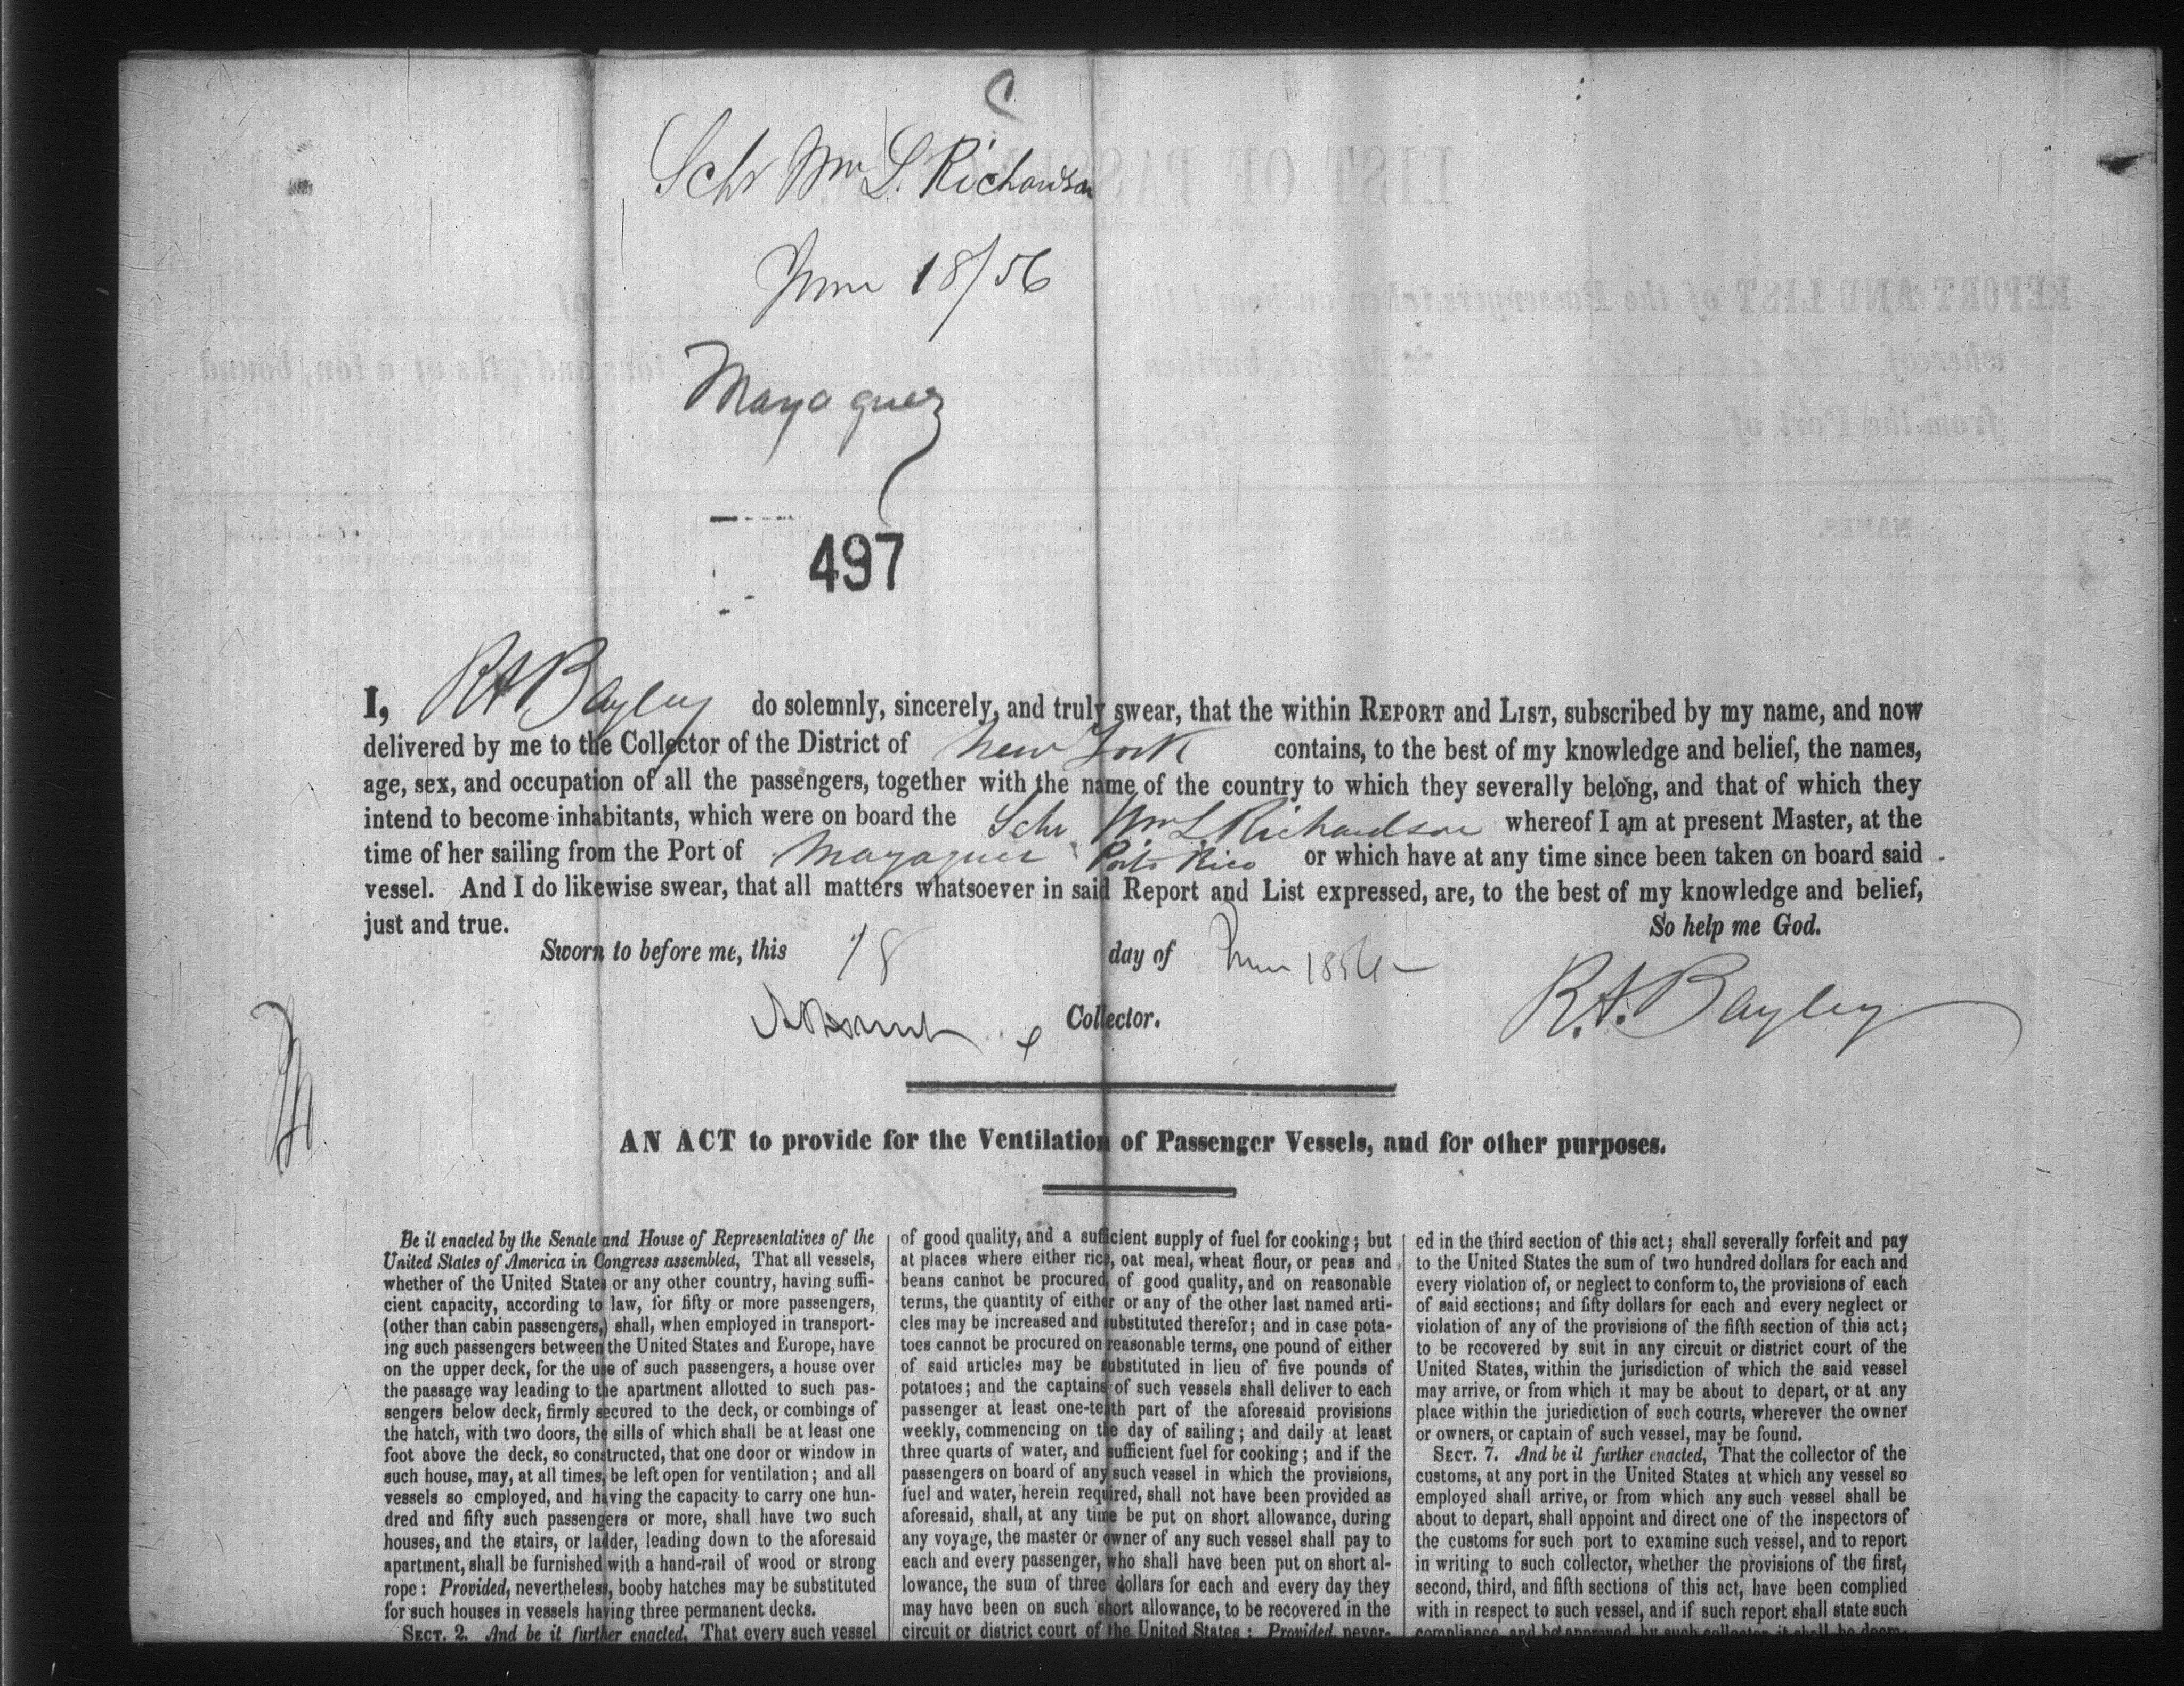 C
Schr Wm L. Richardson
June 18/56
Mayaguez
497
I, R H Bayley do solemnly, sincerely, and truly swear, that the within REPORT and LIST, subscribed by my name, and now
delivered by me to the Collector of the District of New York contains, to the best of my knowledge and belief, the names,
age, sex, and occupation of all the passengers, together with the name of the country to which they severally belong, and that of which they
intend to become inhabitants, which were on board the Schr Wm L Richardson whereof I am at present Master, at the
time of her sailing from the Port of Mayaguez Porto Rico or which have at any time since been taken on board said
vessel. And I do likewise swear, that all matters whatsoever in said Report and List expressed, are, to the best of my knowledge and belief,
just and true. So help me God.
Sworn to before me, this 18 day of June 1856
Collector. Bayley
AN ACT to provide for the Ventilation of Passenger Vessels, and for other purposes.
Be it enacted by the Senate and House of Representatives of the
United States of America in Congress assembled, That all vessels,
whether of the United States or any other country, having suffi-
cient capacity, according to law, for fifty or more passengers,
(other than cabin passengers,) shall, when employed in transport-
ing such passengers between the United States and Europe, have
on the upper deck, for the use of such passengers, a house over
the passage way leading to the apartment allotted to such pas-
sengers below deck, firmly secured to the deck, or combings of
the hatch, with two doors, the sills of which shall be at least one
foot above the deck, so constructed, that one door or window in
such house, may, at all times, be left open for ventilation; and all
vessels so employed, and having the capacity to carry one hun-
dred and fifty such passengers or more, shall have two such
houses, and the stairs, or ladder, leading down to the aforesaid
apartment, shall be furnished with a hand-rail of wood or strong
rope: Provided, nevertheless, booby hatches may be substituted
for such houses in vessels having three permanent decks.
SECT. 2. And be it further enacted, That every such vessel
of good quality, and a sufficient supply of fuel for cooking; but
at places where either rice, oat meal, wheat flour, or peas and
beans cannot be procured, of good quality, and on reasonable
terms, the quantity of either or any of the other last named arti-
cles may be increased and substituted therefor; and in case pota-
toes cannot be procured on reasonable terms, one pound of either
of said articles may be substituted in lieu of five pounds of
potatoes; and the captains of such vessels shall deliver to each
passenger at least one-tenth part of the aforesaid provisions
weekly, commencing on the day of sailing; and daily at least
three quarts of water, and sufficient fuel for cooking; and if the
passengers on board of any such vessel in which the provisions,
fuel and water, herein required, shall not have been provided as
aforesaid, shall, at any time be put on short allowance, during
any voyage, the master or owner of any such vessel shall pay to
each and every passenger, who shall have been put on short al-
lowance, the sum of three dollars for each and every day they
may have been on such short allowance, to be recovered in the
circuit or district court of the United States: Provided, never-
ed in the third section of this act; shall severally forfeit and pay
to the United States the sum of two hundred dollars for each and
every violation of, or neglect to conform to, the provisions of each
of said sections; and fifty dollars for each and every neglect or
violation of any of the provisions of the fifth section of this act;
to be recovered by suit in any circuit or district court of the
United States, within the jurisdiction of which the said vessel
may arrive, or from which it may be about to depart, or at any
place within the jurisdiction of such courts, wherever the owner
or owners, or captain of such vessel, may be found.
SECT. 7. And be it further enacted, That the collector of the
customs, at any port in the United States at which any vessel so
employed shall arrive, or from which any such vessel shall be
about to depart, shall appoint and direct one of the inspectors of
the customs for such port to examine such vessel, and to report
in writing to such collector, whether the provisions of the first,
second, third, and fifth sections of this act, have been complied
with in respect to such vessel, and if such report shall state such
compliance, and be approved by such collector, it shall be deem-